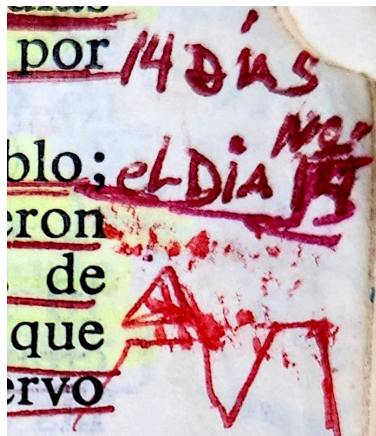 por 14 Días
No!
blo; eL DiA 14
eron
de
que
ervo